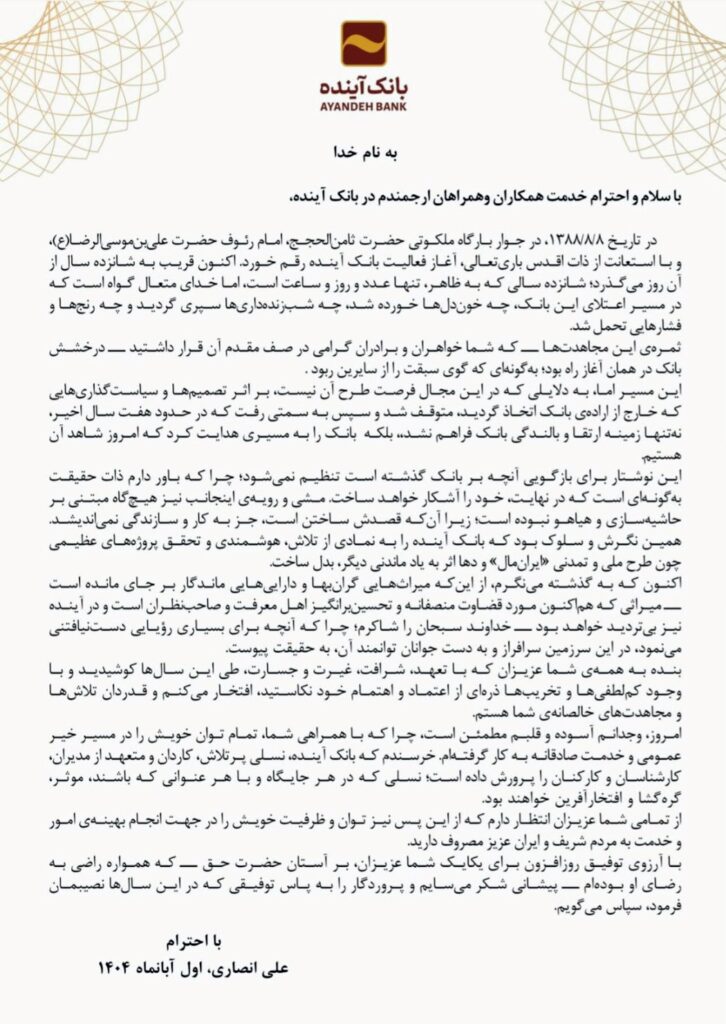 بانک آینده
AYANDEH BANK
به نام خدا
با سلام و احترام خدمت همکاران وهمراهان ارجمندم در بانک آینده،
در تاریخ ۱۳۸۸/۸/۸، در جوار بارگاه ملکوتی حضرت ثامن‌الحجج، امام رئوف حضرت علی‌بن‌موسی‌الرضا(ع)،
و با استعانت از ذات اقدس باری‌تعالی، آغاز فعالیت بانک آینده رقم خورد. اکنون قریب به شانزده سال از
آن روز می‌گذرد؛ شانزده سالی که به ظاهر، تنها عدد و روز و ساعت است، اما خدای متعال گواه است که
در مسیر اعتلای این بانک، چه خون‌دل‌ها خورده شد، چه شب‌زنده‌داری‌ها سپری گردید و چه رنج‌ها و
فشارهایی تحمل شد.
ثمره‌ی این مجاهدت‌ها ــ که شما خواهران و برادران گرامی در صف مقدم آن قرار داشتید ــ درخشش
بانک در همان آغاز راه بود؛ به‌گونه‌ای که گوی سبقت را از سایرین ربود .
این مسیر اما، به دلایلی که در این مجال فرصت طرح آن نیست، بر اثر تصمیم‌ها و سیاست‌گذاری‌هایی
که خارج از اراده‌ی بانک اتخاذ گردید، متوقف شد و سپس به سمتی رفت که در حدود هفت سال اخیر،
نه‌تنها زمینه ارتقا و بالندگی بانک فراهم نشد،، بلکه بانک را به مسیری هدایت کرد که امروز شاهد آن
هستیم.
این نوشتار برای بازگویی آنچه بر بانک گذشته است تنظیم نمی‌شود؛ چرا که باور دارم ذات حقیقت
به‌گونه‌ای است که در نهایت، خود را آشکار خواهد ساخت. مشی و رویه‌ی اینجانب نیز هیچ‌گاه مبتنی بر
حاشیه‌سازی و هیاهو نبوده است؛ زیرا آن‌که قصدش ساختن است، جز به کار و سازندگی نمی‌اندیشد.
همین نگرش و سلوک بود که بانک آینده را به نمادی از تلاش، هوشمندی و تحقق پروژه‌های عظیمی
چون طرح ملی و تمدنی «ایران‌مال» و دها اثر به یاد ماندنی دیگر، بدل ساخت.
اکنون که به گذشته می‌نگرم، از این‌که میراث‌هایی گران‌بها و دارایی‌هایی ماندگار بر جای مانده است
ــ میراثی که هم‌اکنون مورد قضاوت منصفانه و تحسین‌برانگیز اهل معرفت و صاحب‌نظران است و در آینده
نیز بی‌تردید خواهد بود ــ خداوند سبحان را شاکرم؛ چرا که آنچه برای بسیاری رؤیایی دست‌نیافتنی
می‌نمود، در این سرزمین سرافراز و به دست جوانان توانمند آن، به حقیقت پیوست.
بنده به همه‌ی شما عزیزان که با تعهد، شرافت، غیرت و جسارت، طی این سال‌ها کوشیدید و با
وجود کم‌لطفی‌ها و تخریب‌ها ذره‌ای از اعتماد و اهتمام خود نکاستید، افتخار می‌کنم و قدردان تلاش‌ها
و مجاهدت‌های خالصانه‌ی شما هستم.
امروز، وجدانم آسوده و قلبم مطمئن است، چرا که با همراهی شما، تمام توان خویش را در مسیر خیر
عمومی و خدمت صادقانه به کار گرفته‌ام. خرسندم که بانک آینده، نسلی پرتلاش، کاردان و متعهد از مدیران،
کارشناسان و کارکنان را پرورش داده است؛ نسلی که در هر جایگاه و با هر عنوانی که باشند، موثر،
گره‌گشا و افتخارآفرین خواهند بود.
از تمامی شما عزیزان انتظار دارم که از این پس نیز توان و ظرفیت خویش را در جهت انجام بهینه‌ی امور
و خدمت به مردم شریف و ایران عزیز مصروف دارید.
با آرزوی توفیق روزافزون برای یکایک شما عزیزان، بر آستان حضرت حق ــ که همواره راضی به
رضای او بوده‌ام ــ پیشانی شکر می‌سایم و پروردگار را به پاس توفیقی که در این سال‌ها نصیبمان
فرمود، سپاس می‌گویم.
با احترام
علی انصاری، اول آبانماه ۱۴۰۴